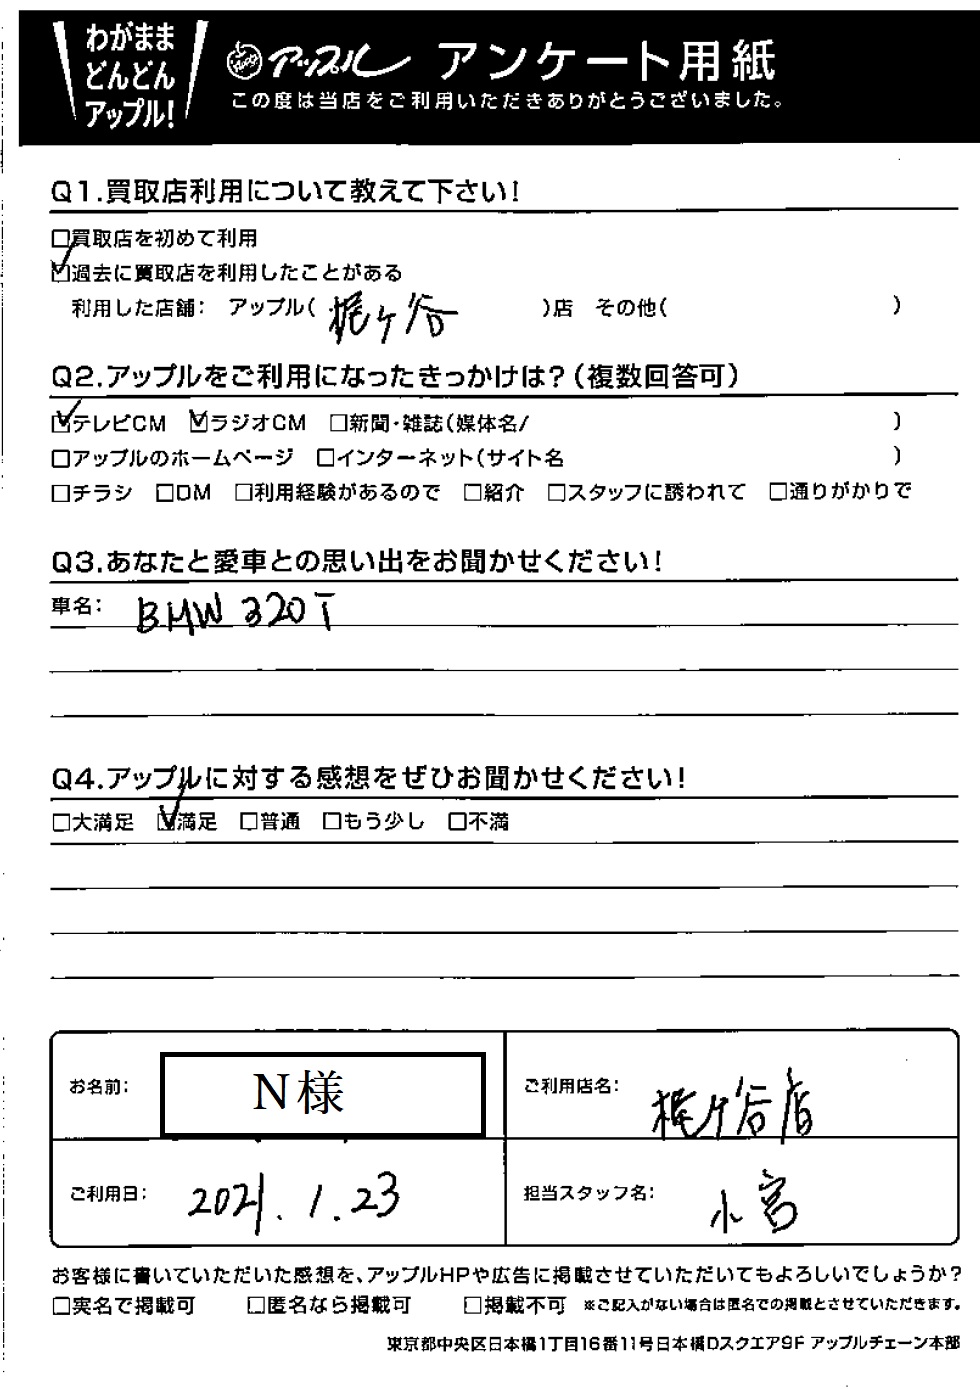 わがまま
どんどん
アップル!
アップル アンケート用紙
この度は当店をご利用いただきありがとうございました。
Q1.買取店利用について教えて下さい!
□買取店を初めて利用
☑過去に買取店を利用したことがある
利用した店舗: アップル( 梶ヶ谷 )店 その他( )
Q2.アップルをご利用になったきっかけは?(複数回答可)
☑テレビCM ☑ラジオCM □新聞・雑誌(媒体名/ )
□アップルのホームページ □インターネット(サイト名 )
□チラシ □DM □利用経験があるので □紹介 □スタッフに誘われて □通りがかりで
Q3.あなたと愛車との思い出をお聞かせください!
車名: BMW 320T
Q4.アップルに対する感想をぜひお聞かせください!
□大満足 ☑満足 □普通 □もう少し □不満
お名前: N様
ご利用店名: 梶ヶ谷店
ご利用日: 2021.1.23
担当スタッフ名: 小宮
お客様に書いていただいた感想を、アップルHPや広告に掲載させていただいてもよろしいでしょうか?
□実名で掲載可 □匿名なら掲載可 □掲載不可 ※ご記入がない場合は匿名での掲載とさせていただきます。
東京都中央区日本橋1丁目16番11号日本橋Dスクエア9F アップルチェーン本部